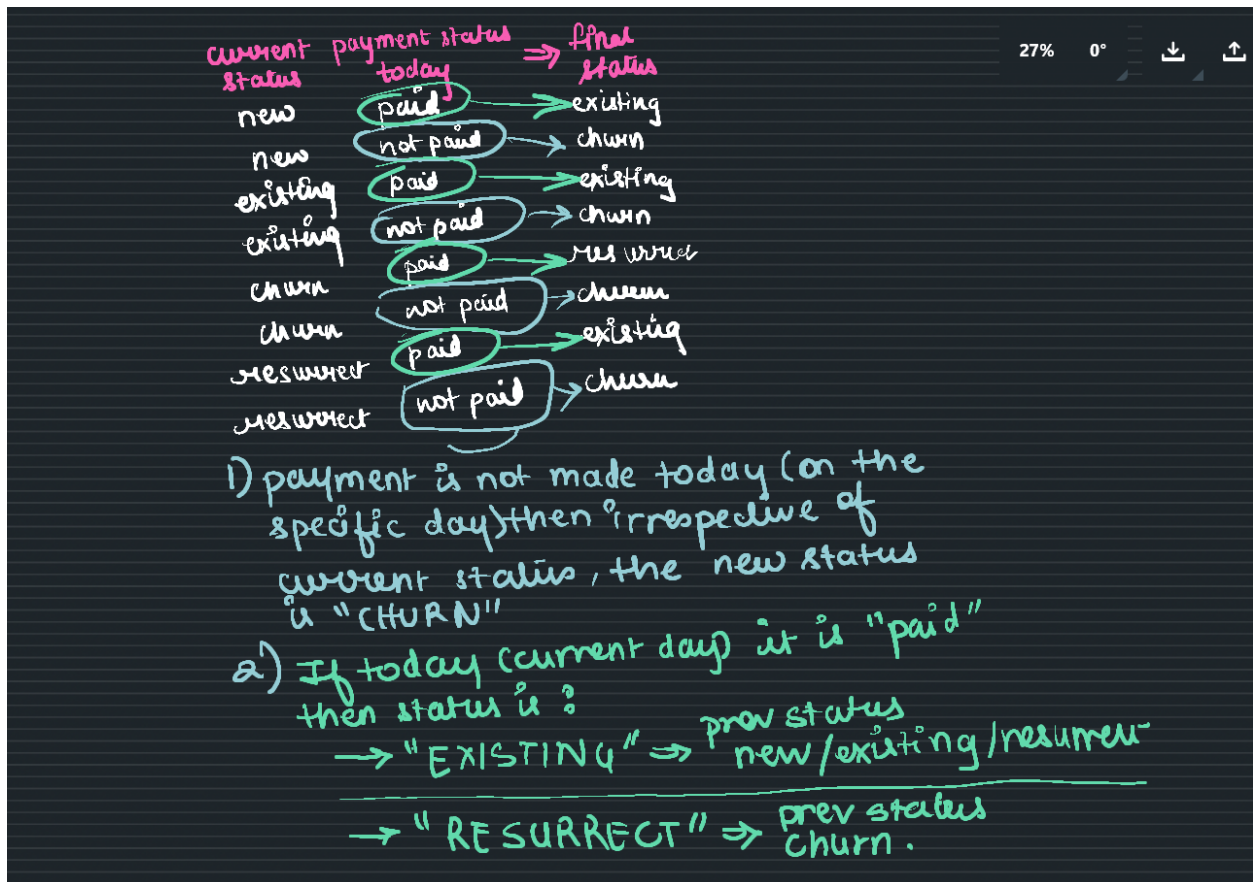 current payment status ⇒ final
status today status
27% 0°
new paid → existing
new not paid → churn
existing paid → existing
existing not paid → churn
churn paid → resurrect
churn not paid → churn
resurrect paid → existing
resurrect not paid → churn
1) payment is not made today (on the
specific day) then irrespective of
current status, the new status
is "CHURN"
2) If today (current day) it is "paid"
then status is :
→ "EXISTING" ⇒ prev status
new/existing/resurrect
→ "RESURRECT" ⇒ prev status
churn.